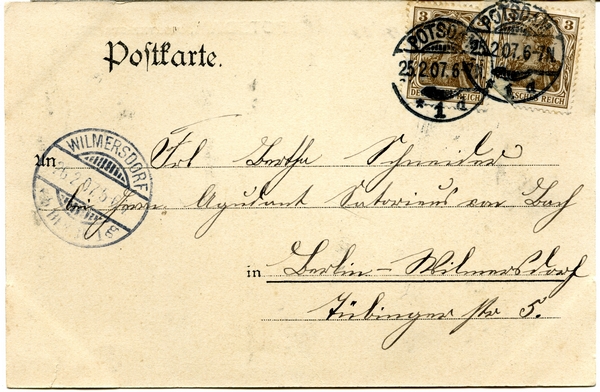 Postkarte.
3 3
POTSDAM
25.2.07.6-7N.
* 1 d
POTSDAM
25.2.07.6-7N
* 1 d
DEUTSCHES REICH
DEUTSCHES REICH
WILMERSDORF
26.2.07.
An Frl Bertha Schneider
Herrn Agudant Satorius von Bach
in Berlin-Wilmersdorf
Tübinger str 5.